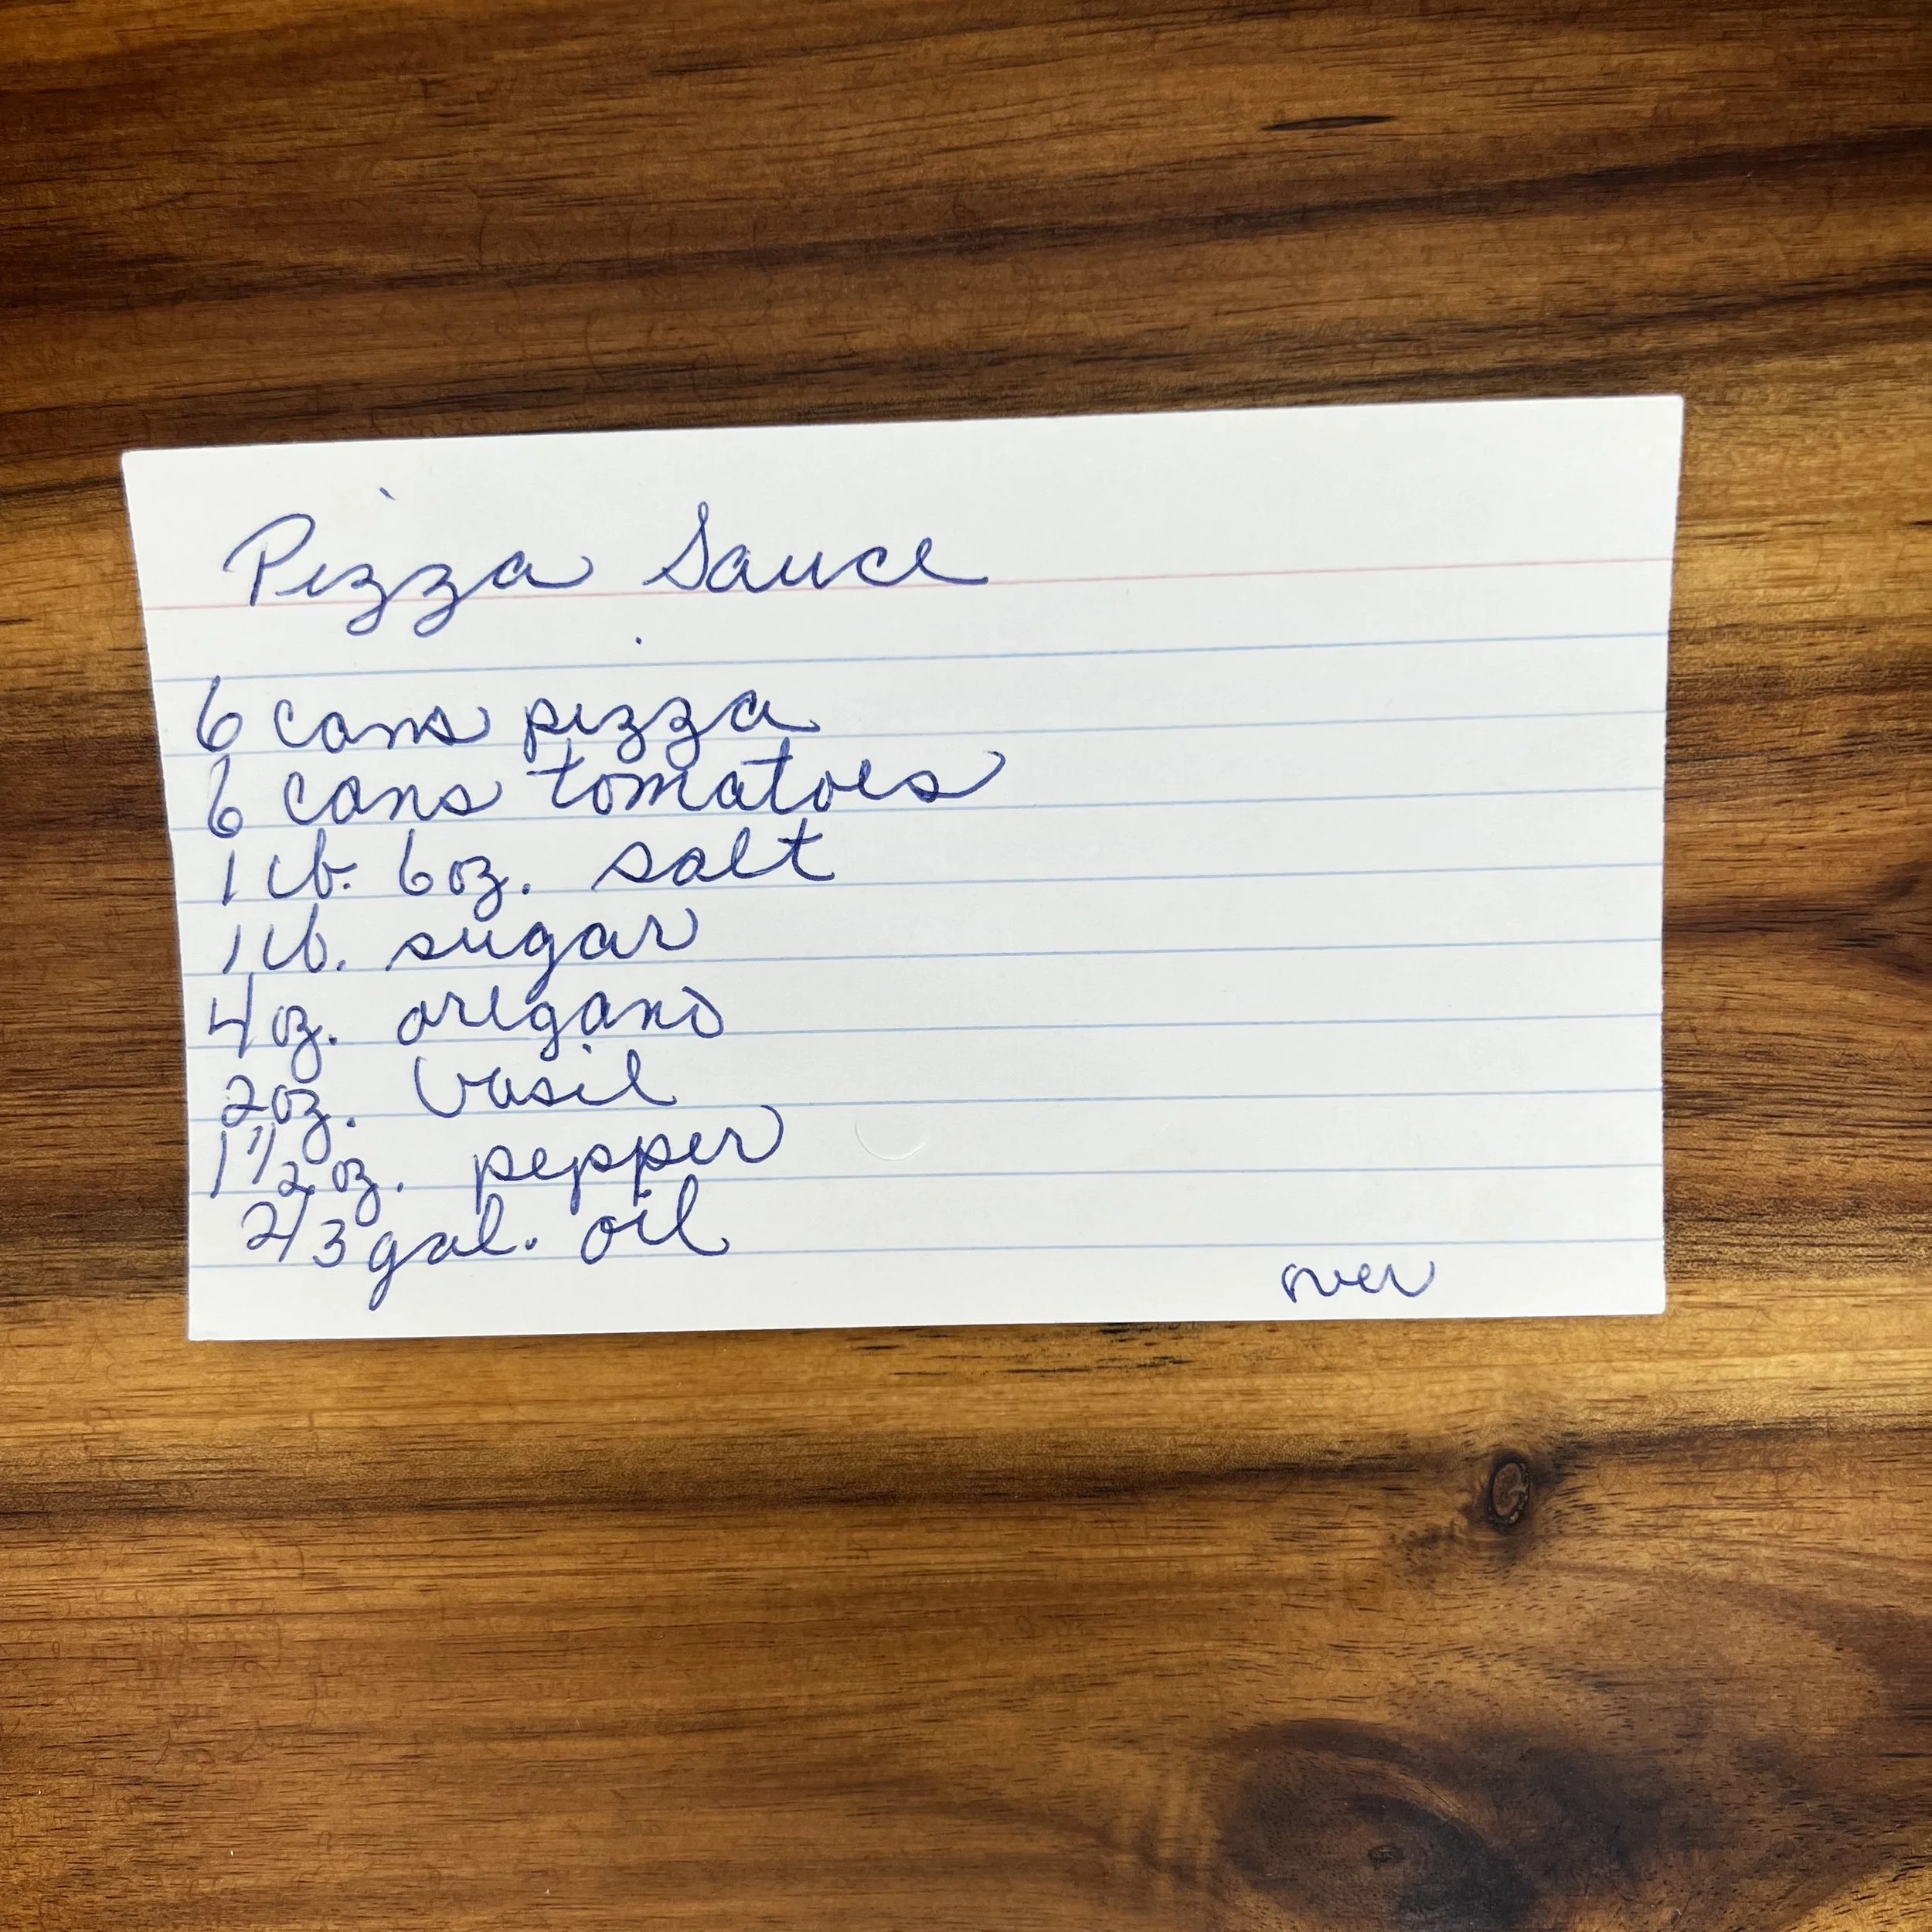 Pizza Sauce
6 cans pizza
6 cans tomatoes
1 lb. 6 oz. salt
1 lb. sugar
4 oz. oregano
2 oz. basil
1 1/2 oz. pepper
2/3 gal. oil
over